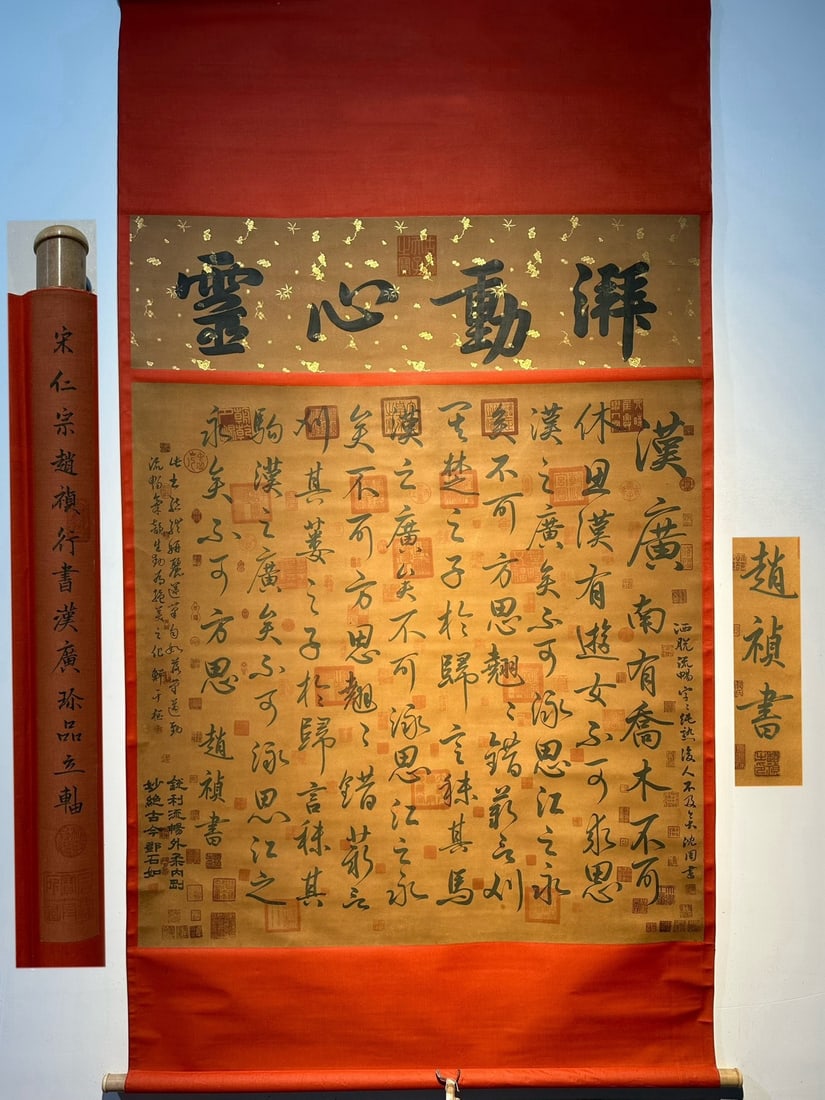 湃動心靈
宋仁宗趙禎行書漢廣珍品立軸
洒脫流暢字〻純熟後人不及矣沈周書
漢廣南有喬木不可
休思漢有遊女不可求思
漢之廣矣不可泳思江之永
矣不可方思翹〻錯薪言刈
其楚之子於歸言秣其馬
漢之廣矣不可泳思江之永
矣不可方思翹〻錯薪言
刈其蔞之子於歸言秣其
駒漢之廣矣不可泳思江之
永矣不可方思趙禎書
此書結體妍麗運筆勻和落筆遒勁
流暢氣韻生動為絕美之化鮮于樞
銳利流暢外柔內剛
妙絕古今鄧石如
趙禎書